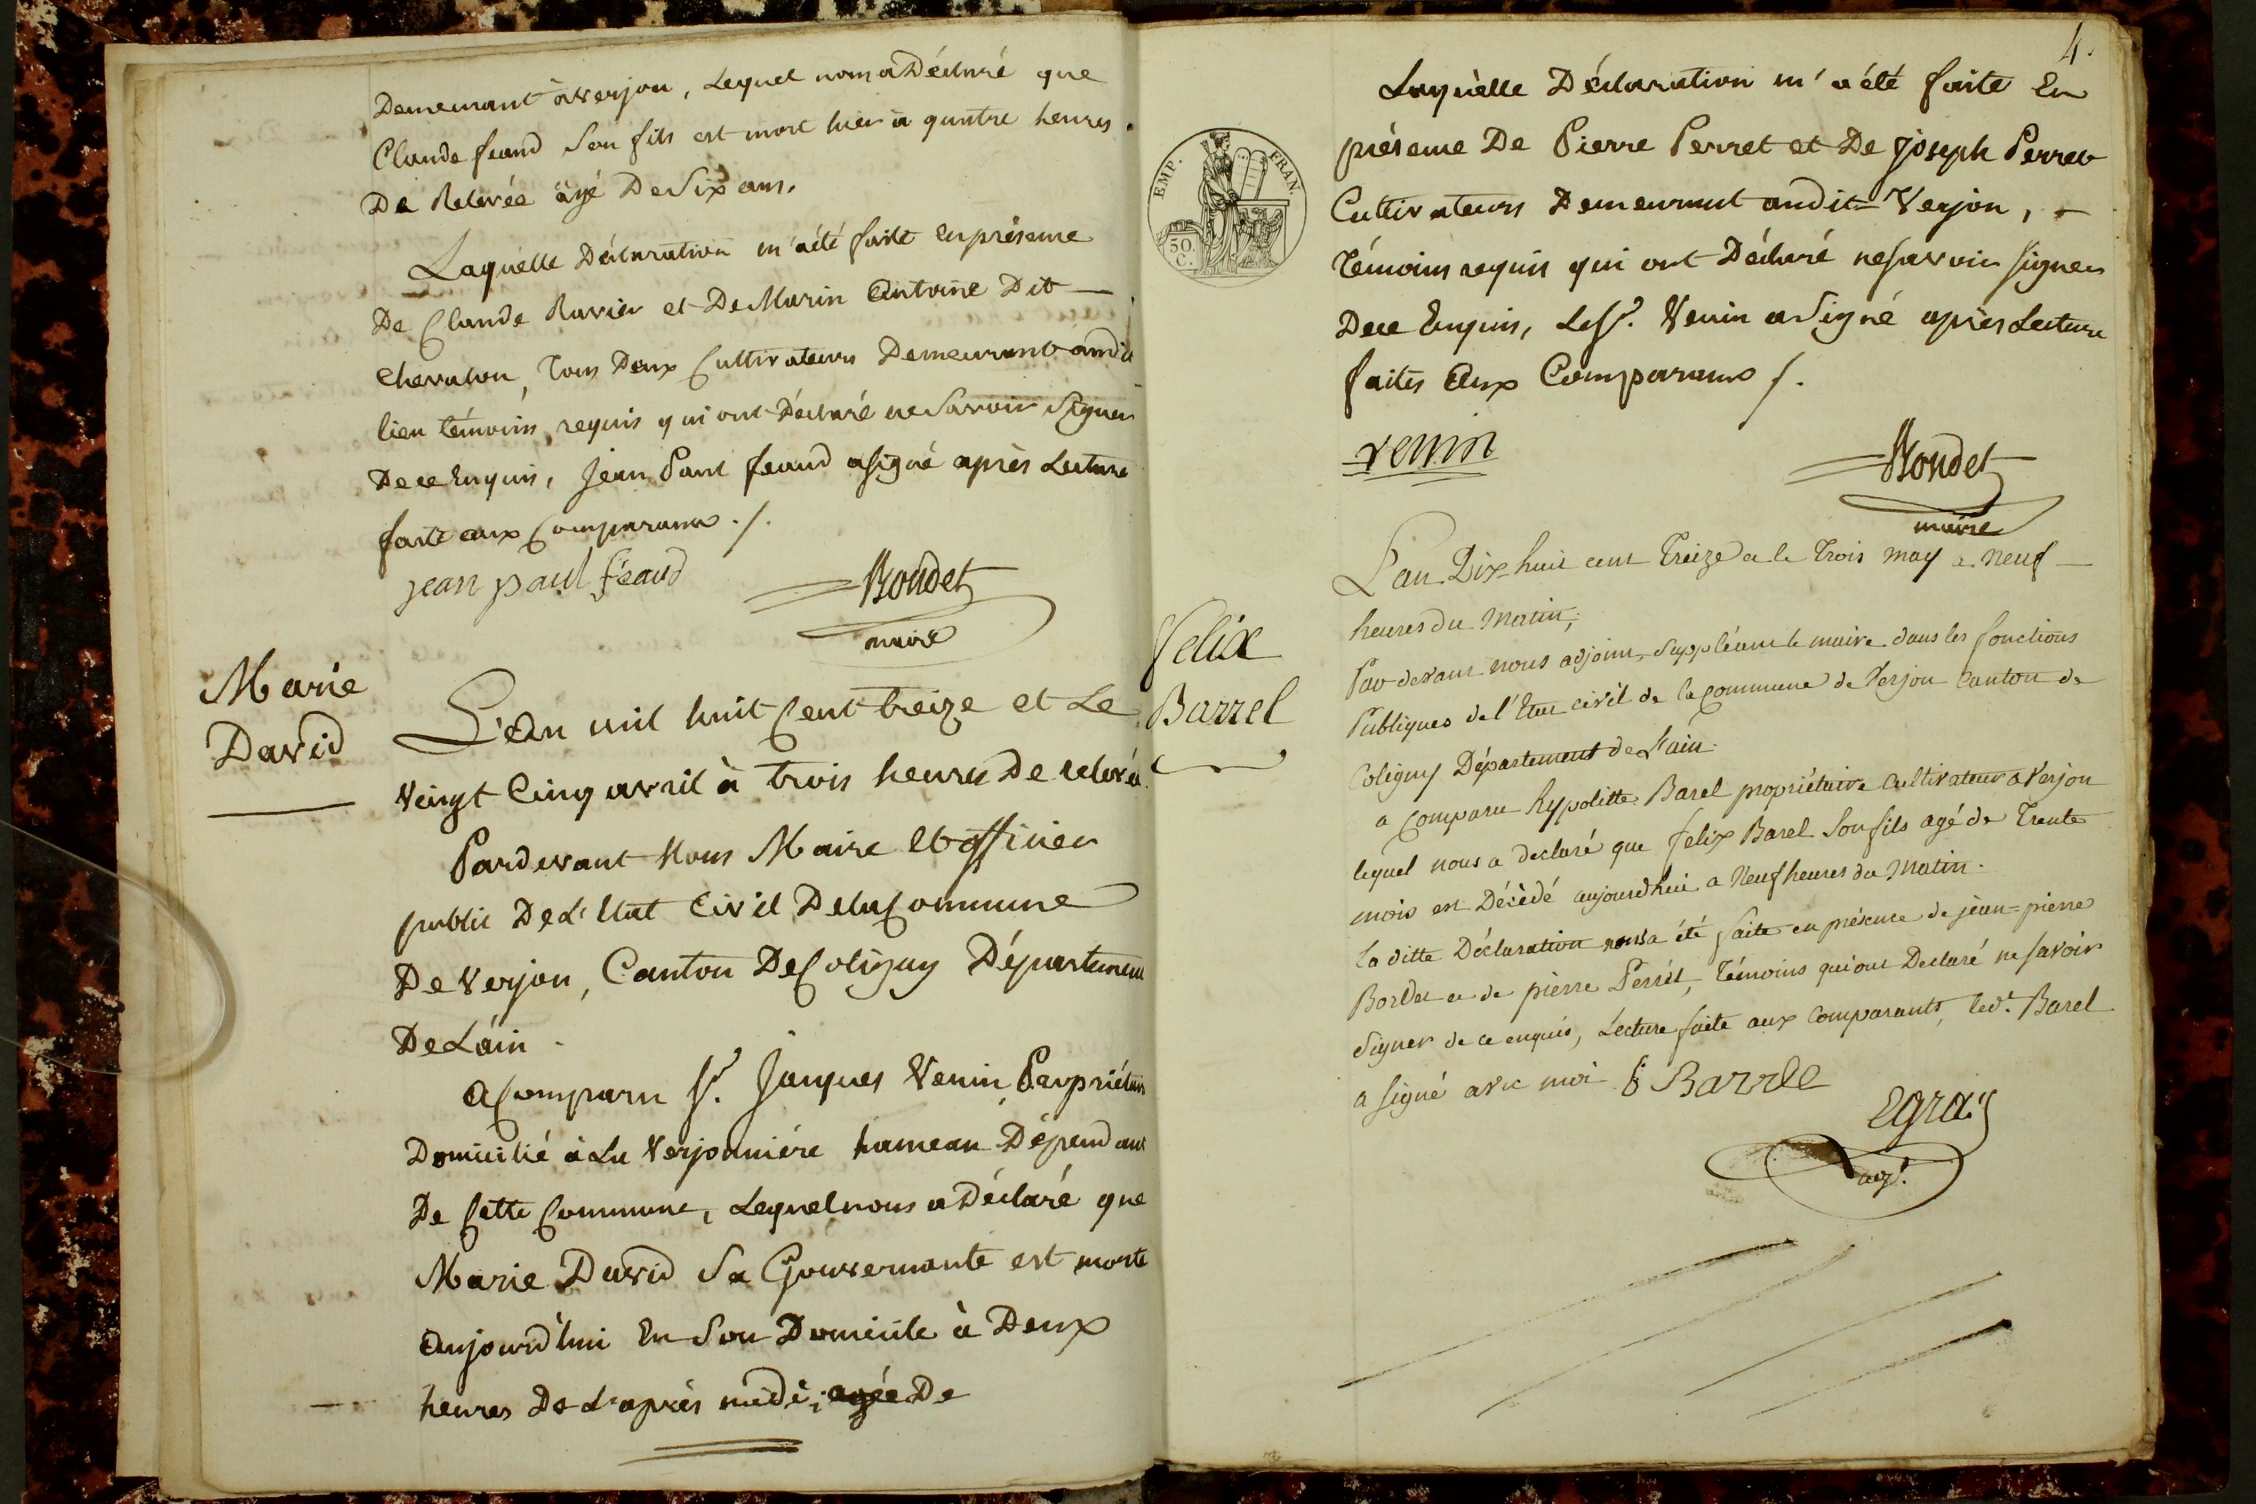 Demeurant à verjon, Lequel nous a Déclaré que
Claude feaud Son fils est mort hier à quatre heures
De Relevée âgé De Six ans.
Laquelle Déclaration m'a été faite En présence
De Claude Ravier et De Marin Antoine Dit
Chevalon, Tous Deux Cultivateurs Demeurant audit
lieu témoins requis qui ont Déclaré ne Savoir Signer
De ce Enquis, Jean Paul feaud a signé après Lecture
faite aux Comparans ./.
jean paul féaud
Bondet
maire
Marie
David
L'An mil huit Cent treize et Le
Veingt Cinq avril à trois heures De relevée
Pardevant Nous Maire Et officier
public De L'Etat Civil De la Commune
De Verjon, Canton De Coligny Département
De L'ain.
A Comparu Sr. Jacques Venin, Propriétaire
Domicilié à La Verjonniére hameau Dépendant
De Cette Commune, Lequel nous a Déclaré que
Marie David Sa Gouvernante est morte
Aujourd'hui En Son Domicile à Deux
heures De L'après midi, agée De
4.
Laquèlle Déclaration m'a été faite En
présence De Pierre Perret et De Joseph Perret
Cultivateurs Demeurant audit Verjon,
Témoins requis qui ont Déclaré ne Savoir Signer
De ce Enquis, Le Sr. Venin a Signé après Lecture
faites Aux Comparans /.
EMP. FRAN.
50.
C.
venin
Bondet
maire
Felix
Barrel
L'an Dix-huit cent Treize et le Trois may a neuf
heures du Matin;
Par devant nous adjoint, Suppléant le maire dans les fonctions
Publiques de l'Etat civil de la Commune de Verjon Canton de
Coligny Département de L'ain.
a Comparu hypolitte Barel propriétaire Cultivateur a Verjon
lequel nous a déclaré que felix Barel Son fils agé de Trente
mois est Décédé aujourd'hui a Neuf heures du Matin.
la ditte Déclaration nous a été faite en présence de jean=pierre
Bordet et de pierre Perrèt, Témoins qui ont Declaré ne Savoir
Signer de ce enquis, Lecture faite aux Comparants, led.t Barel
a Signé avec moi Barrele
Egray
adj.t